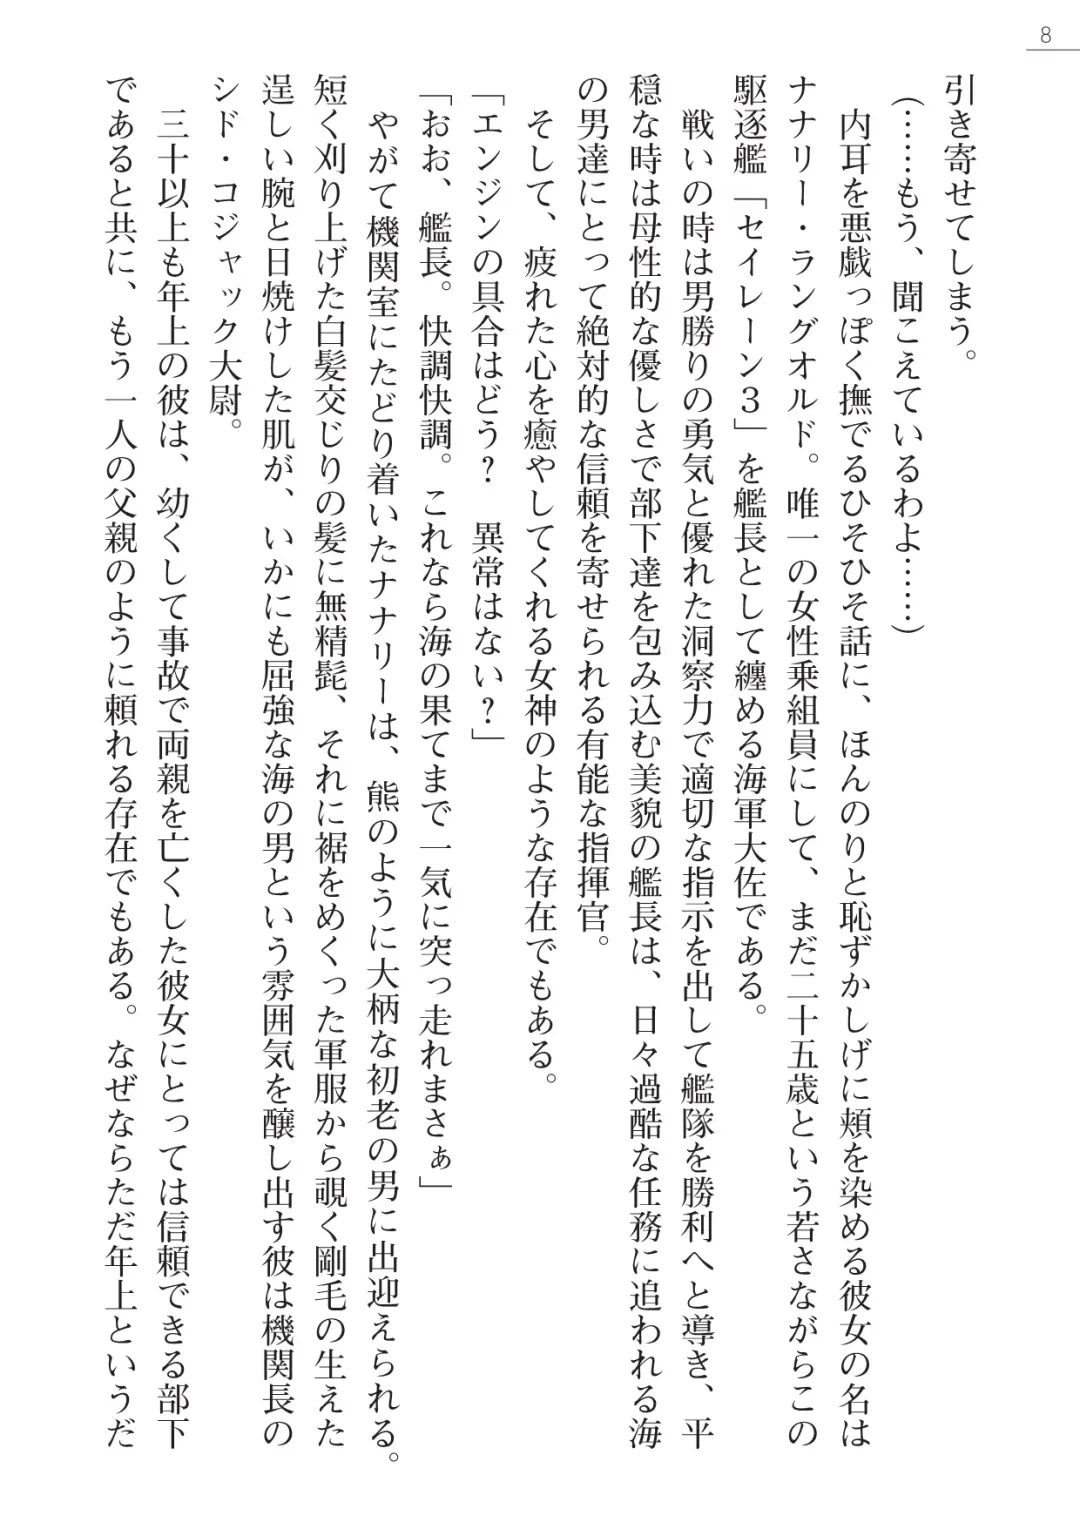 8
引き寄せてしまう。
（……もう、聞こえているわよ……）
　内耳を悪戯っぽく撫でるひそひそ話に、ほんのりと恥ずかしげに頬を染める彼女の名は
ナナリー・ラングオルド。唯一の女性乗組員にして、まだ二十五歳という若さながらこの
駆逐艦「セイレーン３」を艦長として纏める海軍大佐である。
　戦いの時は男勝りの勇気と優れた洞察力で適切な指示を出して艦隊を勝利へと導き、平
穏な時は母性的な優しさで部下達を包み込む美貌の艦長は、日々過酷な任務に追われる海
の男達にとって絶対的な信頼を寄せられる有能な指揮官。
　そして、疲れた心を癒やしてくれる女神のような存在でもある。
「エンジンの具合はどう？　異常はない？」
「おお、艦長。快調快調。これなら海の果てまで一気に突っ走れまさぁ」
　やがて機関室にたどり着いたナナリーは、熊のように大柄な初老の男に出迎えられる。
短く刈り上げた白髪交じりの髪に無精髭、それに裾をめくった軍服から覗く剛毛の生えた
逞しい腕と日焼けした肌が、いかにも屈強な海の男という雰囲気を醸し出す彼は機関長の
シド・コジャック大尉。
　三十以上も年上の彼は、幼くして事故で両親を亡くした彼女にとっては信頼できる部下
であると共に、もう一人の父親のように頼れる存在でもある。なぜならただ年上というだ